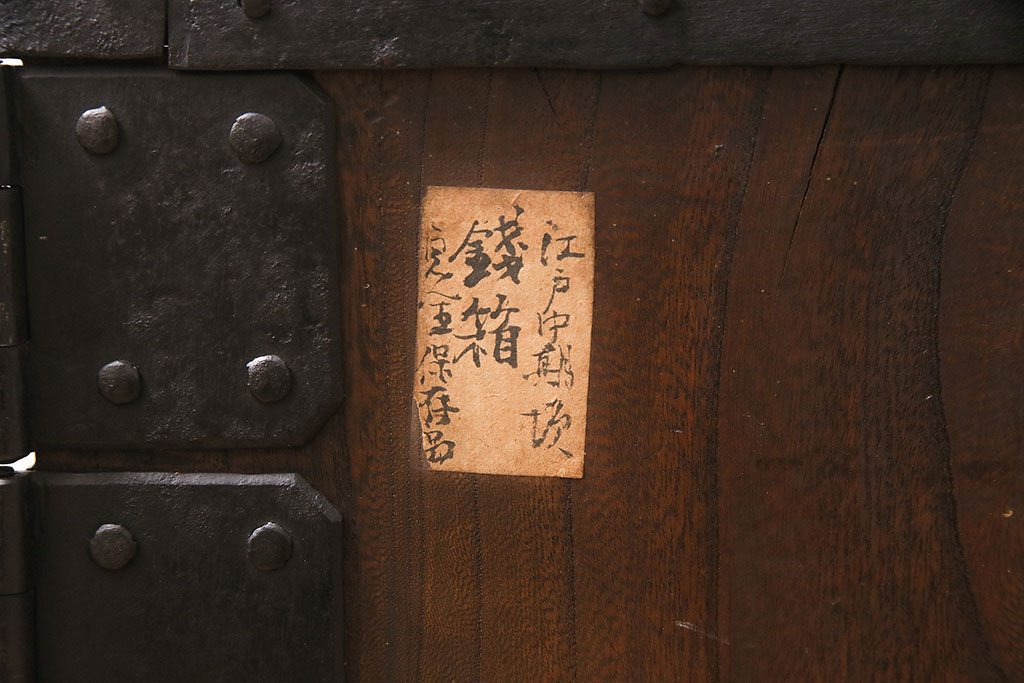 江戸中期頃
錢箱
完全保存品